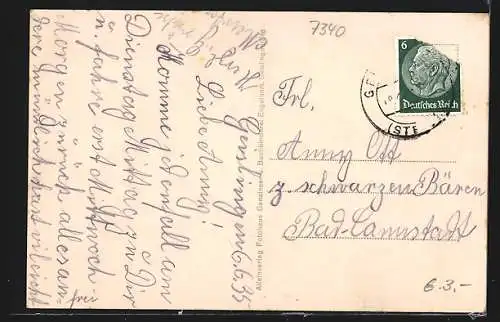 7340
6
Deutsches Reich
GE
(STE
Frl.
Anny Ott
z. schwarzen Bären
Bad-Cannstadt
6.3.-
Geislingen 6.6.35
Liebe Anny!
Komme jedenfall am
Dienstag Mittag zu Dir
u. fahre erst Mittwoch
Morgen zurück alles an-
dere mündlich hast vileicht
frei